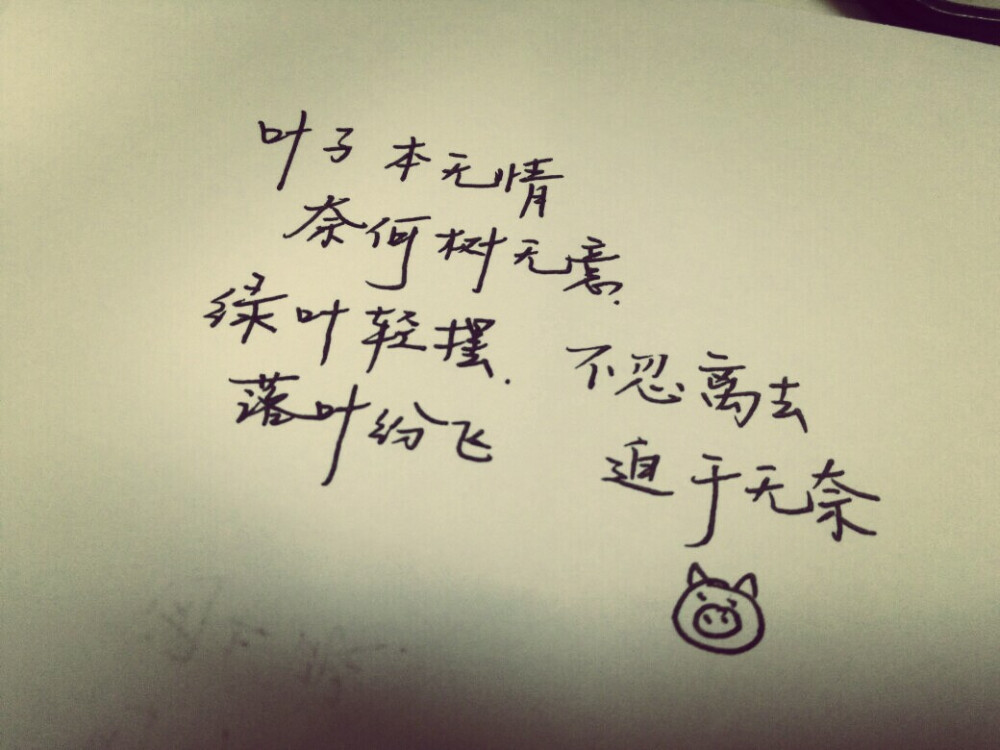 叶子本无情
奈何树无意.
绿叶轻摆. 不忍离去
落叶纷飞 迫于无奈